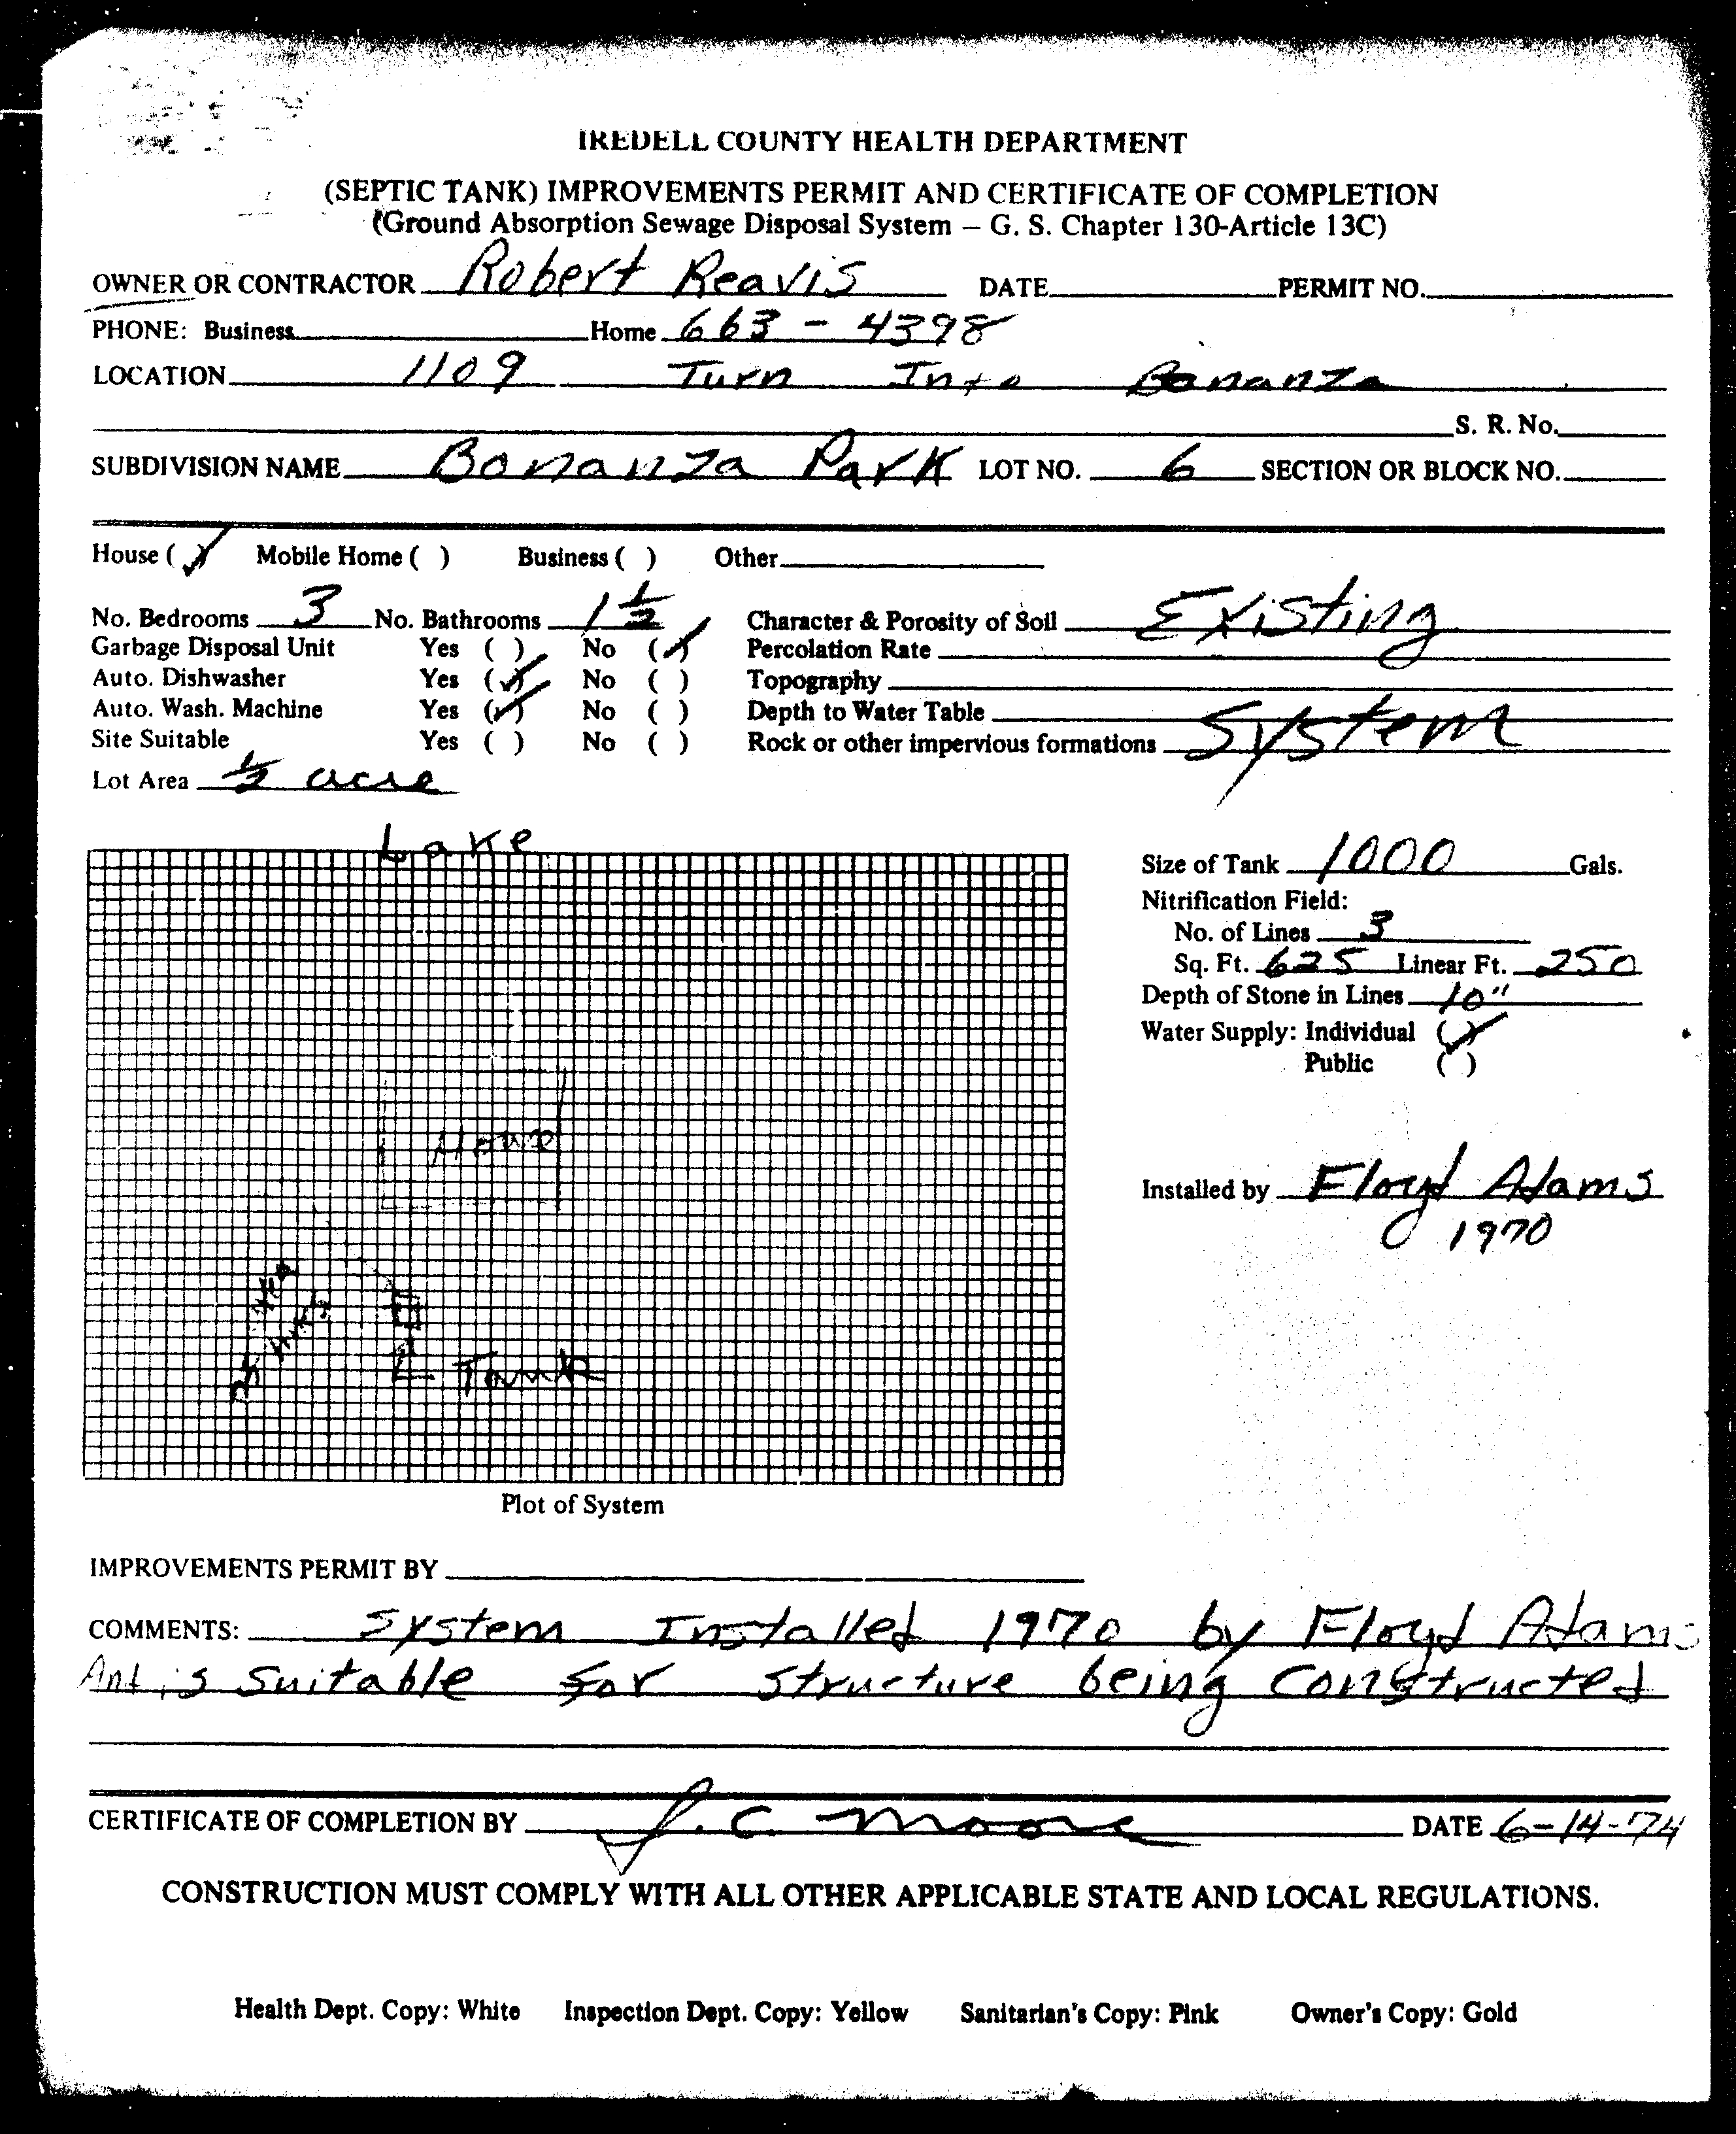 IREDELL COUNTY HEALTH DEPARTMENT
(SEPTIC TANK) IMPROVEMENTS PERMIT AND CERTIFICATE OF COMPLETION
(Ground Absorption Sewage Disposal System – G. S. Chapter 130-Article 13C)
OWNER OR CONTRACTOR Robert Reavis DATE PERMIT NO.
PHONE: Business Home 663-4398
LOCATION 1109 Turn Into Bonanza
S. R. No.
SUBDIVISION NAME Bonanza Park LOT NO. 6 SECTION OR BLOCK NO.
House (✓) Mobile Home ( ) Business ( ) Other
No. Bedrooms 3 No. Bathrooms 1 1/2 Character & Porosity of Soil Existing
Garbage Disposal Unit Yes ( ) No (✓) Percolation Rate
Auto. Dishwasher Yes (✓) No ( ) Topography
Auto. Wash. Machine Yes (✓) No ( ) Depth to Water Table
Site Suitable Yes ( ) No ( ) Rock or other impervious formations System
Lot Area 1/2 acre
Lake
Size of Tank 1000 Gals.
Nitrification Field:
No. of Lines 3
Sq. Ft. 625 Linear Ft. 250
Depth of Stone in Lines 10"
Water Supply: Individual (✓)
Public ( )
Installed by Floyd Adams
1970
Tank
Plot of System
IMPROVEMENTS PERMIT BY
COMMENTS: System Installed 1970 by Floyd Adams
And is Suitable for structure being constructed
CERTIFICATE OF COMPLETION BY J. C. Moore DATE 6-14-74
CONSTRUCTION MUST COMPLY WITH ALL OTHER APPLICABLE STATE AND LOCAL REGULATIONS.
Health Dept. Copy: White Inspection Dept. Copy: Yellow Sanitarian's Copy: Pink Owner's Copy: Gold